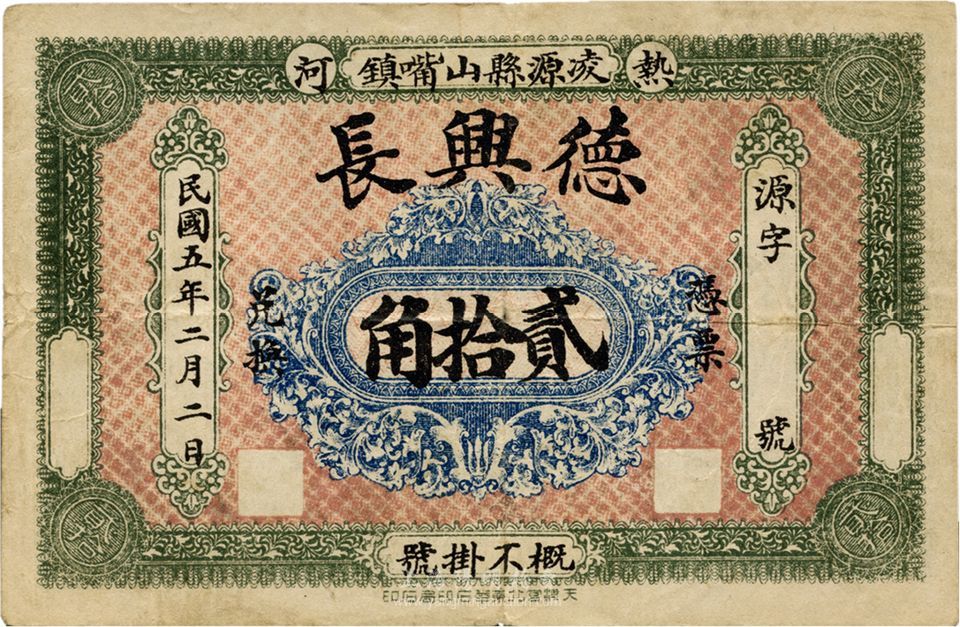 熱河
凌源縣山嘴鎮
德興長
源字 號
憑票
貳拾角
兌換
民國五年二月二日
概不掛號